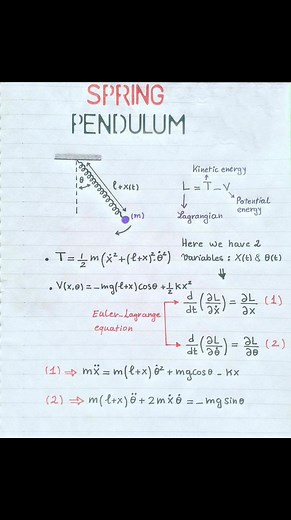 SPRING
PENDULUM
θ
l+x(t)
(m)
Kinetic energy
L = T - V
Potential energy
Lagrangian
Here we have 2
variables: x(t) & θ(t)
• T = 1/2 m (ẋ² + (l+x)² θ̇²)
• V(x,θ) = -mg(l+x)cosθ + 1/2 kx²
Euler_Lagrange
equation
d/dt (∂L/∂ẋ) = ∂L/∂x (1)
d/dt (∂L/∂θ̇) = ∂L/∂θ (2)
(1) ⇒ mẍ = m(l+x) θ̇² + mg cosθ - kx
(2) ⇒ m(l+x) θ̈ + 2mẋθ̇ = -mg sinθ